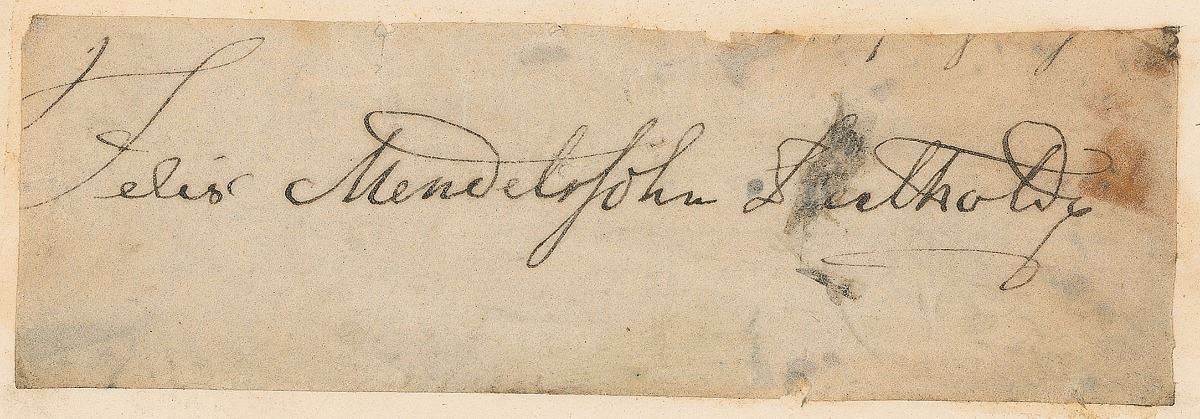 Felix Mendelssohn Bertholdy